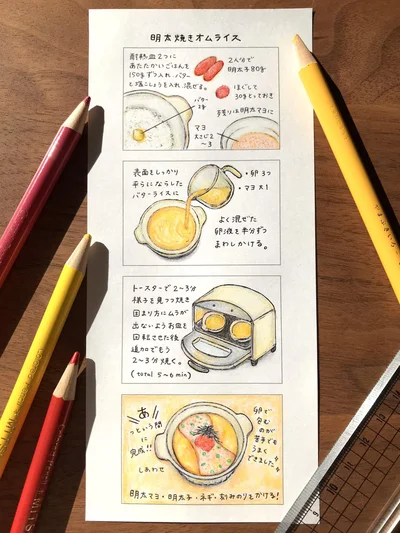 明太焼きオムライス
耐熱皿2つに
あたたかいごはんを
150gずつ入れ、バター
と塩こしょうを入れ混ぜる。
バター
2人分で
明太子80g
ほぐして
30gとっておき
残りは明太マヨに
マヨ
大さじ2
~3
表面をしっかり
平らにならした
バターライスに
・卵3つ
・マヨ大1
よく混ぜた
卵液を半分ずつ
まわしかける。
トースターで2~3分
様子を見つつ焼き
固まり方にムラが
出ないようお皿を
回転させた後
追加でもう
2~3分焼く。
(total 5~6min)
あ
っという間
に
完成!!
しあわせ
卵で
包む
のが
苦手でも
うまく
できました
明太マヨ・明太子・ネギ・刻みのりをかける!